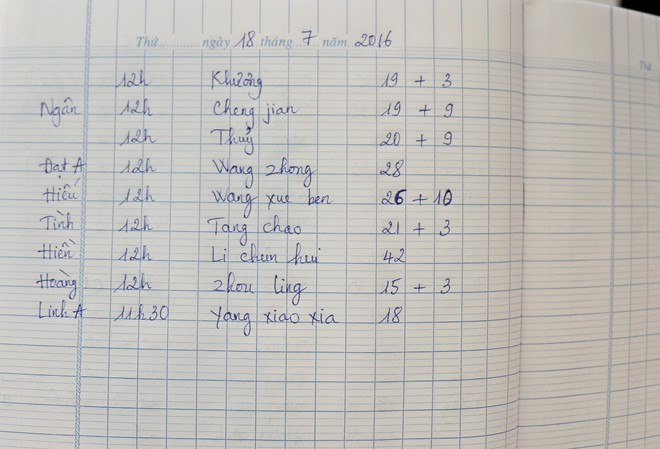 Thứ............ngày 18 tháng 7 năm 2016
12h Khương 19 + 3
Ngân 12h Cheng jian 19 + 9
12h Thuỷ 20 + 9
Đạt A 12h Wang zhong 28
Hiếu 12h Wang xue ben 26 + 10
Tình 12h Tang chao 21 + 3
Hiền 12h Li chun hui 42
Hoàng 12h zhou ling 15 + 3
Linh A 11h30 Yang xiao xia 18